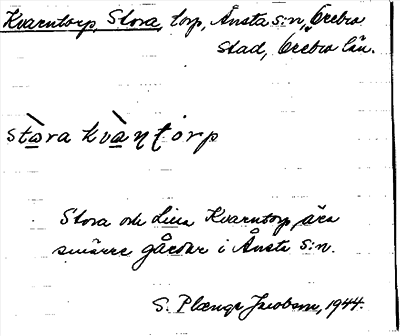 Kvarntorp, Stora, torp, Ånsta s:n, Örebro
stad, Örebro län.
stὰra kvὰņţórp
Stora och Lilla Kvarntorp, ära
smärre gårdar i Ånsta s:n.
S. Plænge Jacobson, 1944.